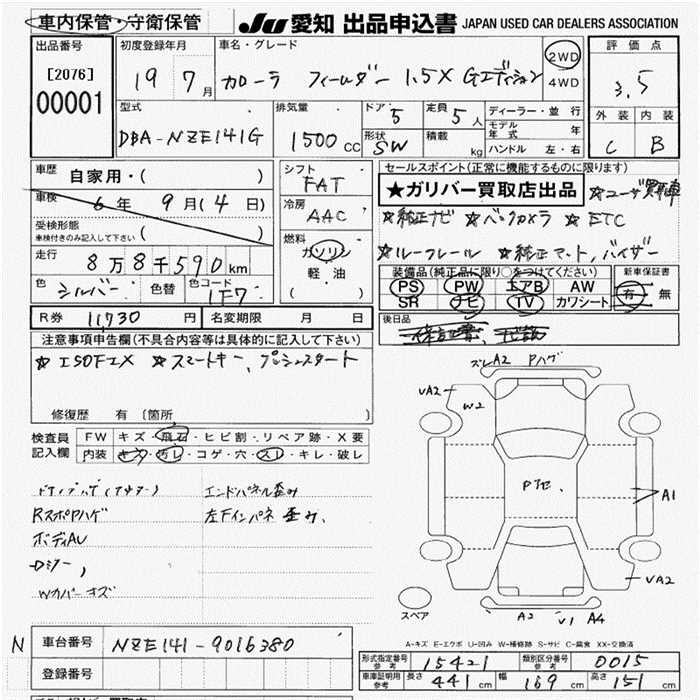 車内保管・守衛保管 JU愛知 出品申込書 JAPAN USED CAR DEALERS ASSOCIATION
出品番号 初度登録年月 車名・グレード 2WD 評価点
[2076] 19 7月 カローラ フィールダー 1.5X Gエディション 4WD 3.5
00001
型式 排気量 ドア 5 定員 5人 ディーラー・並行 外装 内装
DBA-NZE141G 1500cc 形状 SW 積載 kg モデル年式 年 C B
ハンドル 左・右
車歴 自家用・( ) シフト FAT セールスポイント(正常に機能するものに限ります)
車検 6年 9月(4日) 冷房 AAC ★ガリバー買取店出品 ☆ユーザー買取車
受検形態 ( ) ☆純正ナビ ☆バックカメラ ☆ETC
車検付きのみ記入して下さい
走行 8万8千590km 燃料 ガソリン ☆ルーフレール ☆純正マット,バイザー
色 シルバー 色替 色コード 1F7 軽油 装備品(純正品に限り○をつけてください) 新車保証書
PS PW エアB AW 有・無
SR ナビ TV カワシート
R券 11730円 名変期限 月 日 後日品
注意事項申告欄(不具合内容等は具体的に記入して下さい)
☆ISOFIX ☆スマートキー、プッシュスタート
ズレA2 Pハゲ
VA2
W2
修復歴 有〔箇所
検査員 FW キズ・飛石・ヒビ割・リペア跡・X要
記入欄 内装 キズ・汚レ・コゲ・穴・スレ・キレ・破レ
Pケセ.
エンドパネル歪み
RスポPハゲ 左Fインパネ 歪み.
A1
ボディAU
Wカバーキズ
VA2
スペア
A2 V1 A4
A-キズ E-エクボ U-凹み W-補修跡 S-サビ C-腐食 XX-交換済
N 車台番号 NZE141-9016380
形式指定番号 参考 15421 類別区分番号 参考 0015
登録番号 車庫証明用 参考 長さ 441cm 幅 169cm 高さ 151cm